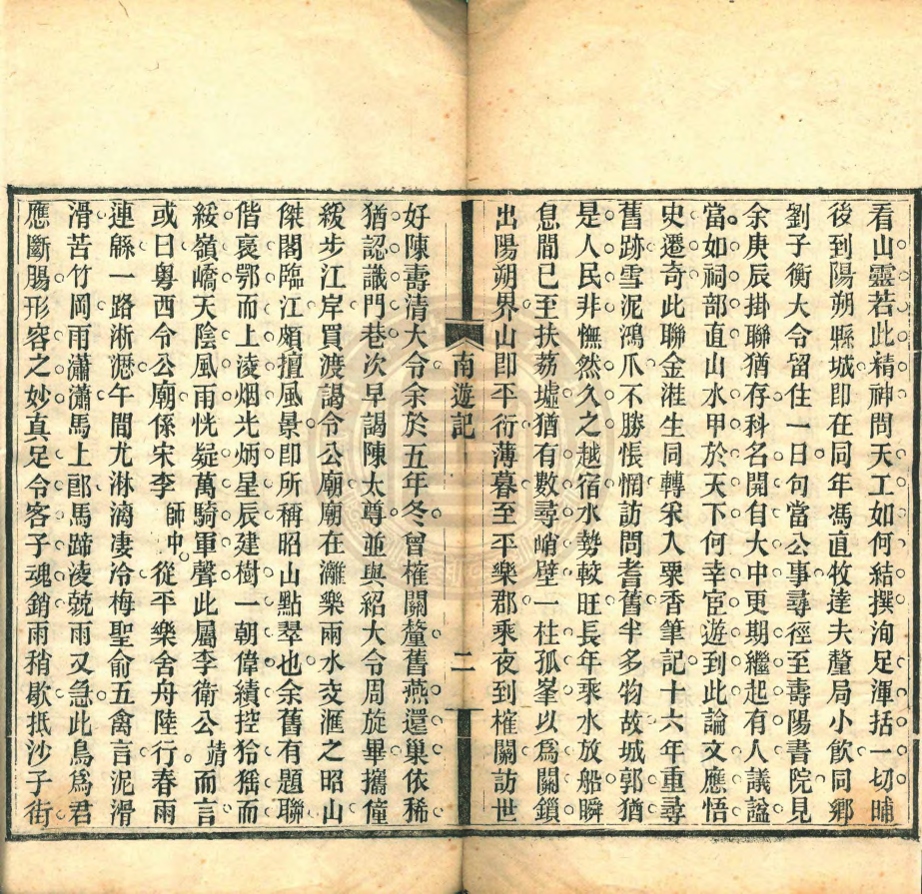 看山靈若此精神問天工如何結撰洵足渾括一切晡
後到陽朔縣城卽在同年馮直牧達夫釐局小飮同鄉
劉子衡大令留住一日句當公事尋徑至壽陽書院見
余庚辰掛聯猶存科名開自大中更期繼起有人議諡
當如祠部直山水甲於天下何幸宦遊到此論文應悟
史遷奇此聯金溎生同轉采入粟香筆記十六年重尋
舊跡雪泥鴻爪不勝悵惘訪問耆舊半多物故城郭猶
是人民非憮然久之越宿水勢較旺長年乘水放船瞬
息間已至扶荔墟猶有數尋峭壁一柱孤峯以爲關鎖
出陽朔界山卽平衍薄暮至平樂郡乘夜到榷關訪世
南遊記
二
好陳壽清大令余於五年冬曾榷關釐舊燕還巢依稀
猶認識門巷次早謁陳太尊並與紹大令周旋畢攜僮
緩步江岸買渡謁令公廟廟在灕樂兩水交滙之昭山
傑閣臨江頗擅風景卽所稱昭山點翠也余舊有題聯
偕裒鄂而上淩烟光炳星辰建樹一朝偉績控狑猺而
綏嶺嶠天陰風雨恍疑萬騎軍聲此屬李衛公靖而言
或曰粤西令公廟係宋李師中從平樂舍舟陸行春雨
連緜一路淅瀝午間尤淋漓淒冷梅聖俞五禽言泥滑
滑苦竹岡雨瀟瀟馬上郎馬蹄淩兢雨又急此鳥爲君
應斷腸形容之妙真足令客子魂銷雨稍歇抵沙子街